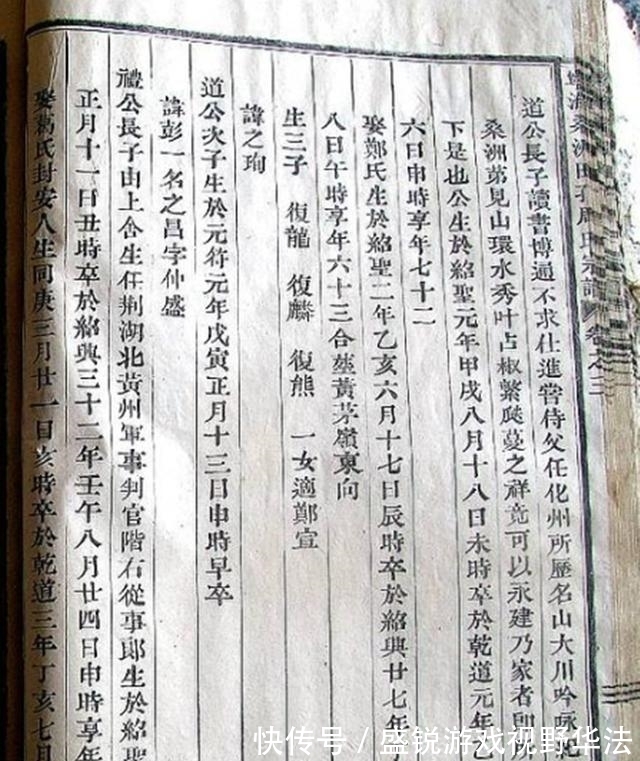 海桑洲田孔周氏宗譜 卷之二
道公長子讀書博通不求仕進嘗侍父任化州所歷名山大川吟詠
桑洲第見山環水秀叶占椒繁瓞蔓之祥竟可以永建乃家者即
下是也公生於紹聖元年甲戌八月十八日未時卒於乾道元年乙
六日申時享年七十二
娶鄭氏生於紹聖二年乙亥六月十七日辰時卒於紹興廿七年
八日午時享年六十三合塟黃茅嶺東向
生三子 復龍 復麟 復熊 一女適鄭宣
諱之珣
道公次子生於元符元年戊寅正月十三日申時早卒
諱彭一名之昌字仲盛
禮公長子由上舍生任荆湖北黃州軍事判官階右從事郎生於紹聖
正月十一日丑時卒於紹興三十二年壬午八月廿四日申時享年
娶葛氏封安人生同庚三月廿一日亥時卒於乾道三年丁亥七月
快传号/盛锐游戏视野华法